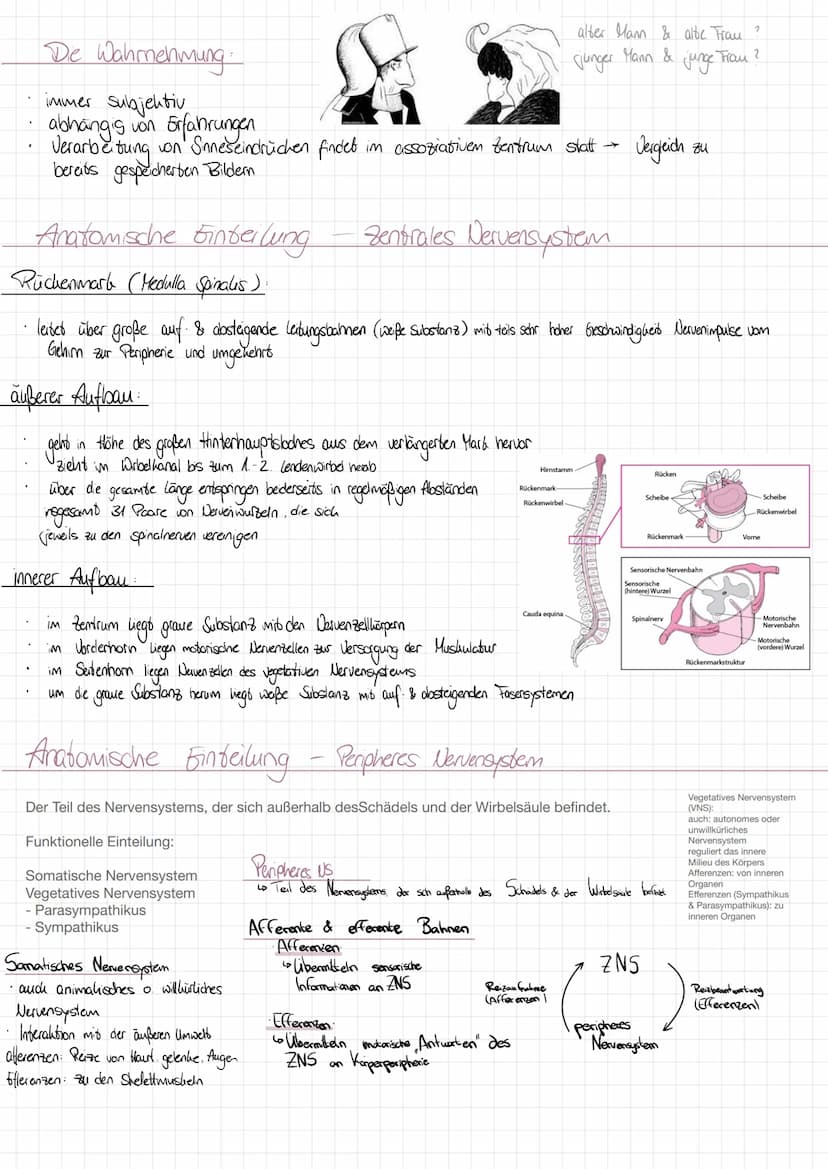 De Wahrnehmung:
alter Mann & alte Frau?
junger Mann & junge Frau?
· immer subjektiv
· abhängig von Erfahrungen
· Verarbeitung von Snneseindrücken findet im assoziativem Zentrum statt → Vergleich zu
bereits gespeicherten Bildern
Anatomische Einteilung – Zentrales Nervensystem
Rückenmark (Medulla Spinalis):
· leitet über große auf- & absteigende Leitungsbahnen (weiße Substanz) mit teils sehr hoher Geschwindigkeit Nervenimpulse vom
Gehirn zur Peripherie und umgekehrt
äußerer Aufbau:
· geht in Höhe des großen Hinterhauptsloches aus dem verlängerten Mark hervor
· zieht im Wirbelkanal bis zum 1.-2. Lendenwirbel herab
· über die gesamte Länge entspringen beiderseits in regelmäßigen Abständen
insgesamt 31 Paare von Nervenwurzeln, die sich
jeweils zu den spinalnerven vereinigen
Hirnstamm
Rückenmark
Rückenwirbel
Cauda equina
Rücken
Scheibe
Scheibe
Rückenwirbel
Rückenmark
Vorne
innerer Aufbau:
· im Zentrum liegt graue Substanz mit den Nervenzellkörpern
· im Vorderhorn liegen motorische Nervenzellen zur Versorgung der Muskulatur
· im Seitenhorn liegen Nervenzellen des vegetativen Nervensystems
· um die graue Substanz herum liegt weiße Substanz mit auf- & absteigenden Fasersystemen
Sensorische Nervenbahn
Sensorische
(hintere) Wurzel
Spinalnerv
Motorische
Nervenbahn
Motorische
(vordere) Wurzel
Rückenmarkstruktur
Anatomische Einteilung – Peripheres Nervensystem
Der Teil des Nervensystems, der sich außerhalb desSchädels und der Wirbelsäule befindet.
Funktionelle Einteilung:
Somatische Nervensystem
Vegetatives Nervensystem
- Parasympathikus
- Sympathikus
Vegetatives Nervensystem
(VNS):
auch: autonomes oder
unwillkürliches
Nervensystem
reguliert das innere
Milieu des Körpers
Afferenzen: von inneren
Organen
Efferenzen (Sympathikus
& Parasympathikus): zu
inneren Organen
Peripheres NS
↳ Teil des Nervensystems, der sich außerhalb des Schädels & der Wirbelsäule befindet
Afferente & efferente Bahnen
· Afferenzen
↳ Übermitteln sensorische
Informationen an ZNS
· Efferenzen:
↳ Übermitteln motorische „Antworten" des
ZNS an Körperperipherie
Somatisches Nervensystem
· auch animalisches o. willkürliches
Nervensystem
· Interaktion mit der äußeren Umwelt
afferenzen: Reize von Haut, gelenke, Augen
Efferenzen: zu den Skelettmuskeln
ZNS
Reizaufnahme
(Afferenzen)
Reizbeantwortung
(Efferenzen)
peripheres
Nervensystem